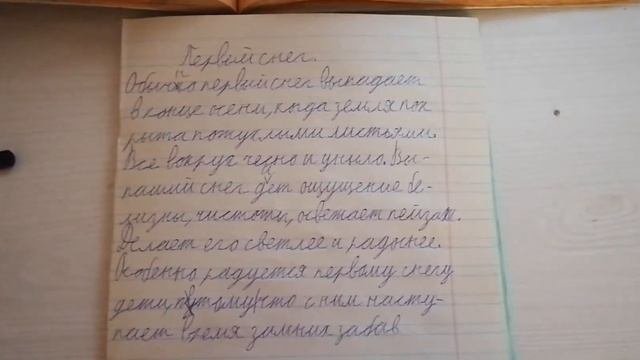 Первый снег.
Обычно первый снег выпадает
в конце осени, когда земля пок
рыта потуглими листьями.
Все вокруг чецно и уныло. Вы-
паший снег дет ощущение бе-
лизны, чистоты, осветает пейзаж.
Делает его светлее и радынее.
Особенно радуется первому снегу
дети, потому что с ним насту-
пает время замних забав